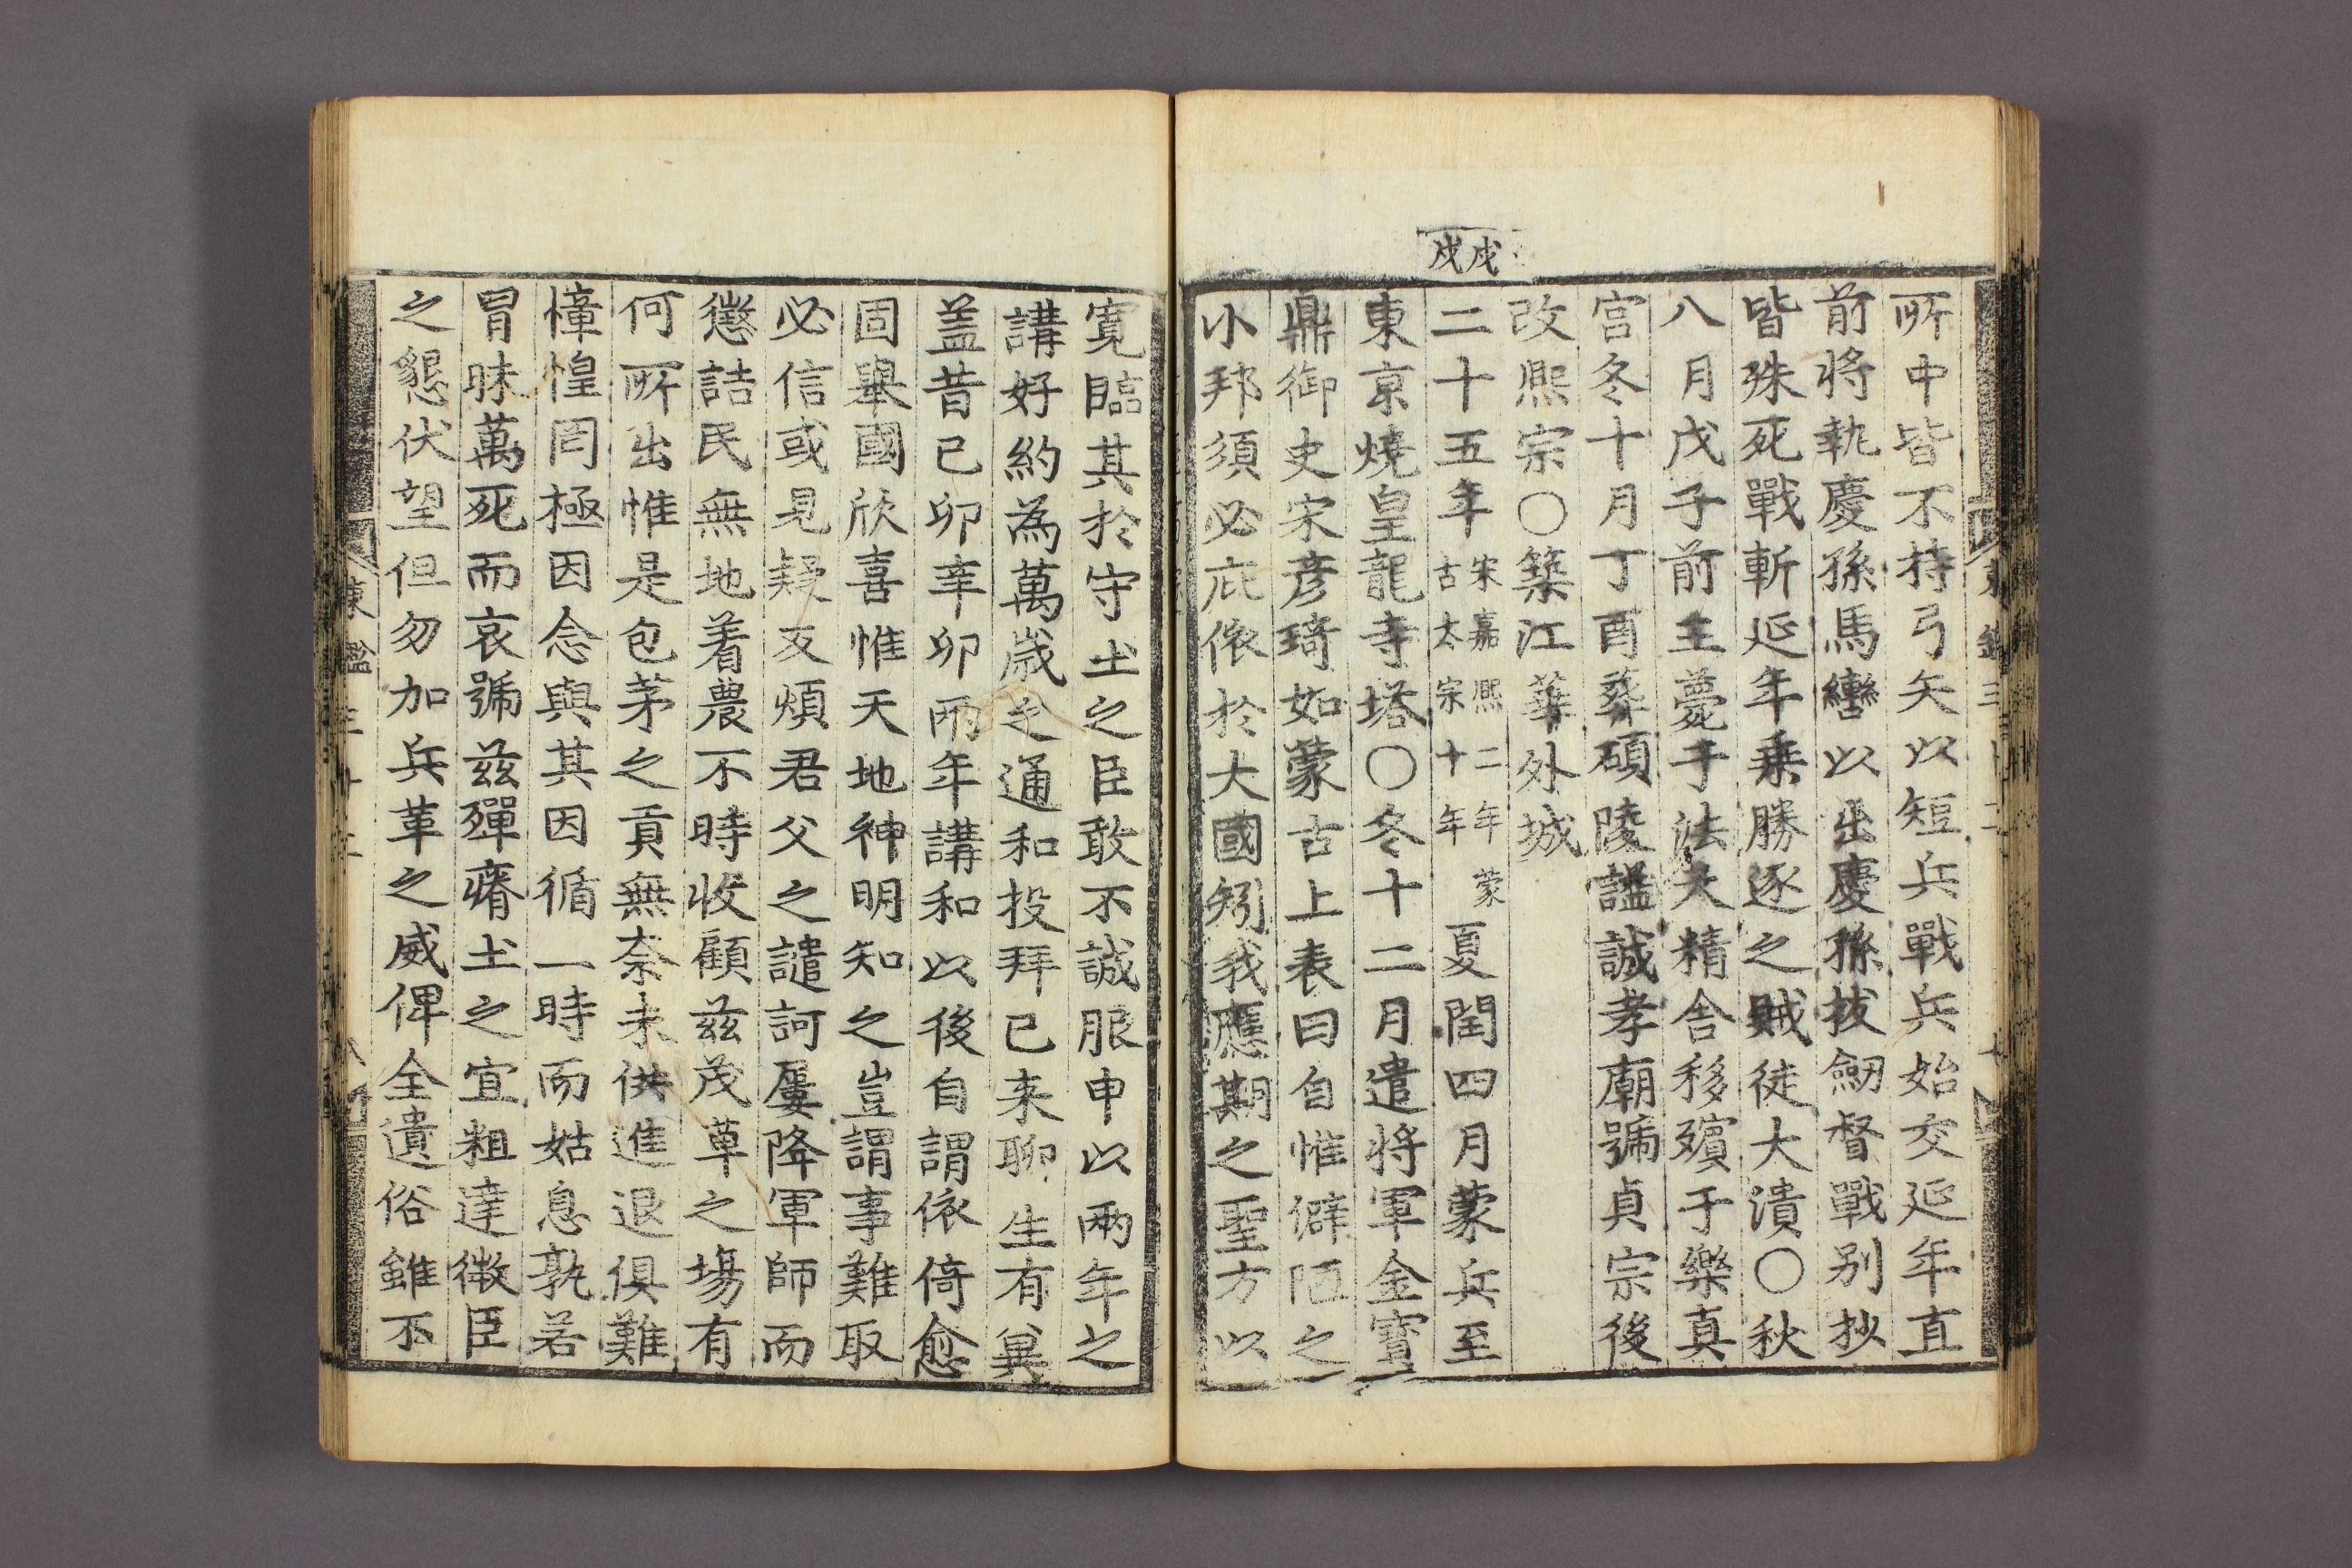 所中皆不持弓矢以短兵戰兵始交延年直
前將執慶孫馬轡以出慶孫拔劒督戰別抄
皆殊死戰斬延年乗勝逐之賊徒大潰○秋
八月戊子前王薨于法天精舍移殯于樂真
宮冬十月丁酉葬碩陵謚誠孝廟號貞宗後
改熙宗○築江華外城
戊戌
二十五年宋嘉熙二年蒙古太宗十年夏閏四月蒙兵至
東京燒皇龍寺塔○冬十二月遣將軍金寶
鼎御史宋彦琦如蒙古上表曰自惟僻陋之
小邦須必庇㑊於大國矧我應期之聖方以
寛臨其於守土之臣敢不誠服申以兩年之
講好約為萬歳之通和投拜已来聊生有兾
盖昔己卯辛卯兩年講和以後自謂依倚愈
固舉國欣喜惟天地神明知之豈謂事難取
必信或見疑反煩君父之譴訶屢降軍師而
懲詰民無地着農不時收顧兹茂草之場有
何所出惟是包茅之貢無奈未供進退俱難
慞惶罔極因念與其因循一時而姑息孰若
冒昧萬死而哀號兹殫瘠土之宜粗達微臣
之懇伏望但勿加兵革之威俾全遺俗雖不